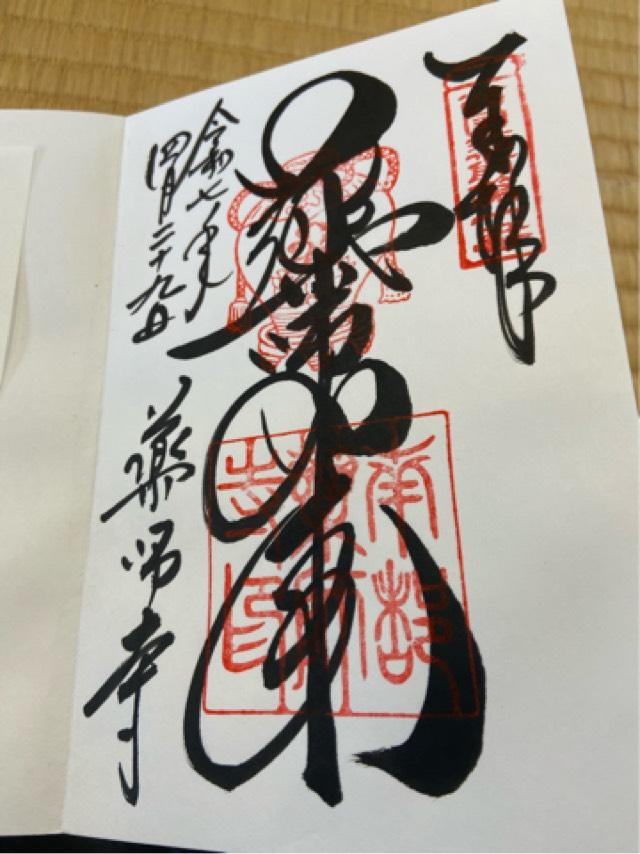 奉拝
薬師如来
令和七年
四月二十九日
薬師寺
南都
薬師
寺印